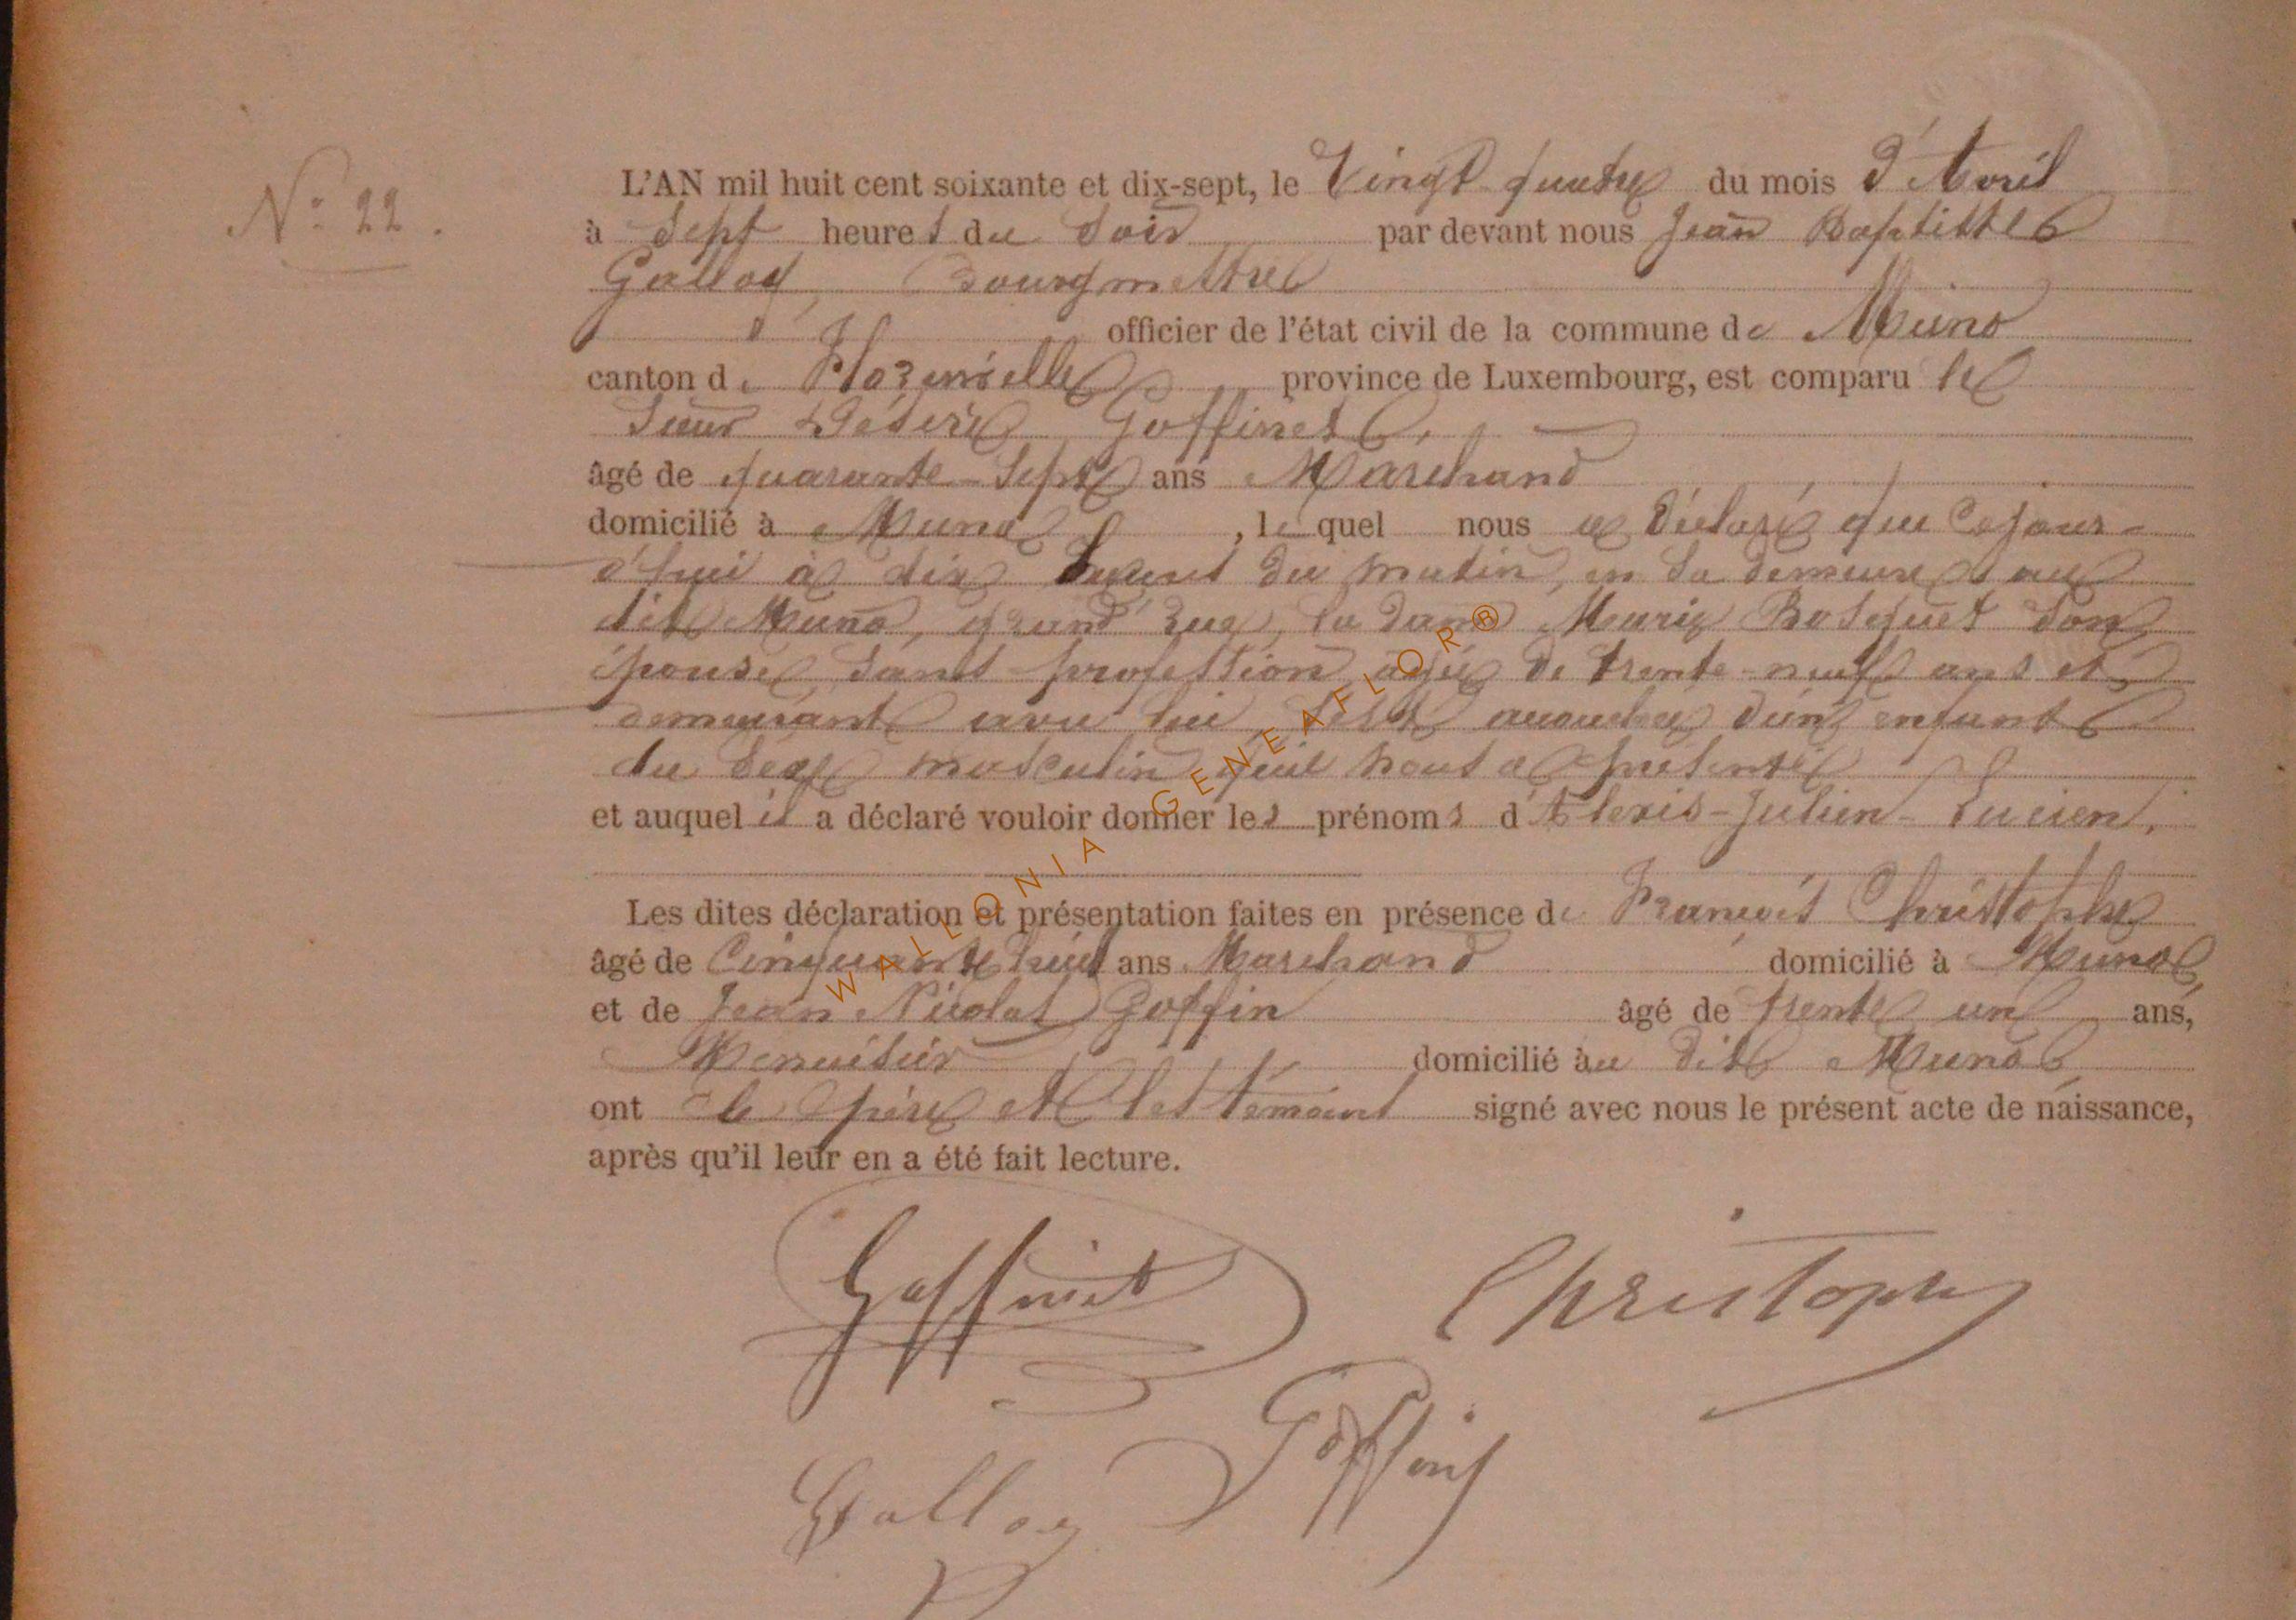 N° 22.
L'AN mil huit cent soixante et dix-sept, le Vingt quatre du mois d'Avril
à Sept heures du Soir par devant nous Jean Baptiste
Bourgmestre
officier de l'état civil de la commune de Muno
canton de Florenville province de Luxembourg, est comparu le
Sieur Désiré Goffinet,
âgé de quarante-Sept ans Marchand
domicilié à Muno, lequel nous a déclaré que Cejour-
d'hui à dix heures du matin, en Sa demeure au
dit Muno, grand'rue, la dame Marie Bosquet Son
épouse, Sans profession, agée de trente-neuf ans et
demeurant avec lui, S'est accouchée d'un enfant
du Sexe masculin qu'il nous a présenté
et auquel il a déclaré vouloir donner les prénoms d'Alexis-Julien-Lucien.
Les dites déclaration et présentation faites en présence de François Christophe
âgé de Cinquante huit ans Marchand domicilié à Muno,
et de Jean Nicolas Goffin âgé de trente un ans,
Menuisier domicilié au dit Muno
ont le père et les témoins signé avec nous le présent acte de naissance,
après qu'il leur en a été fait lecture.
Goffinet Christophe
Goffin
WALLONIA GENEAFLOR®